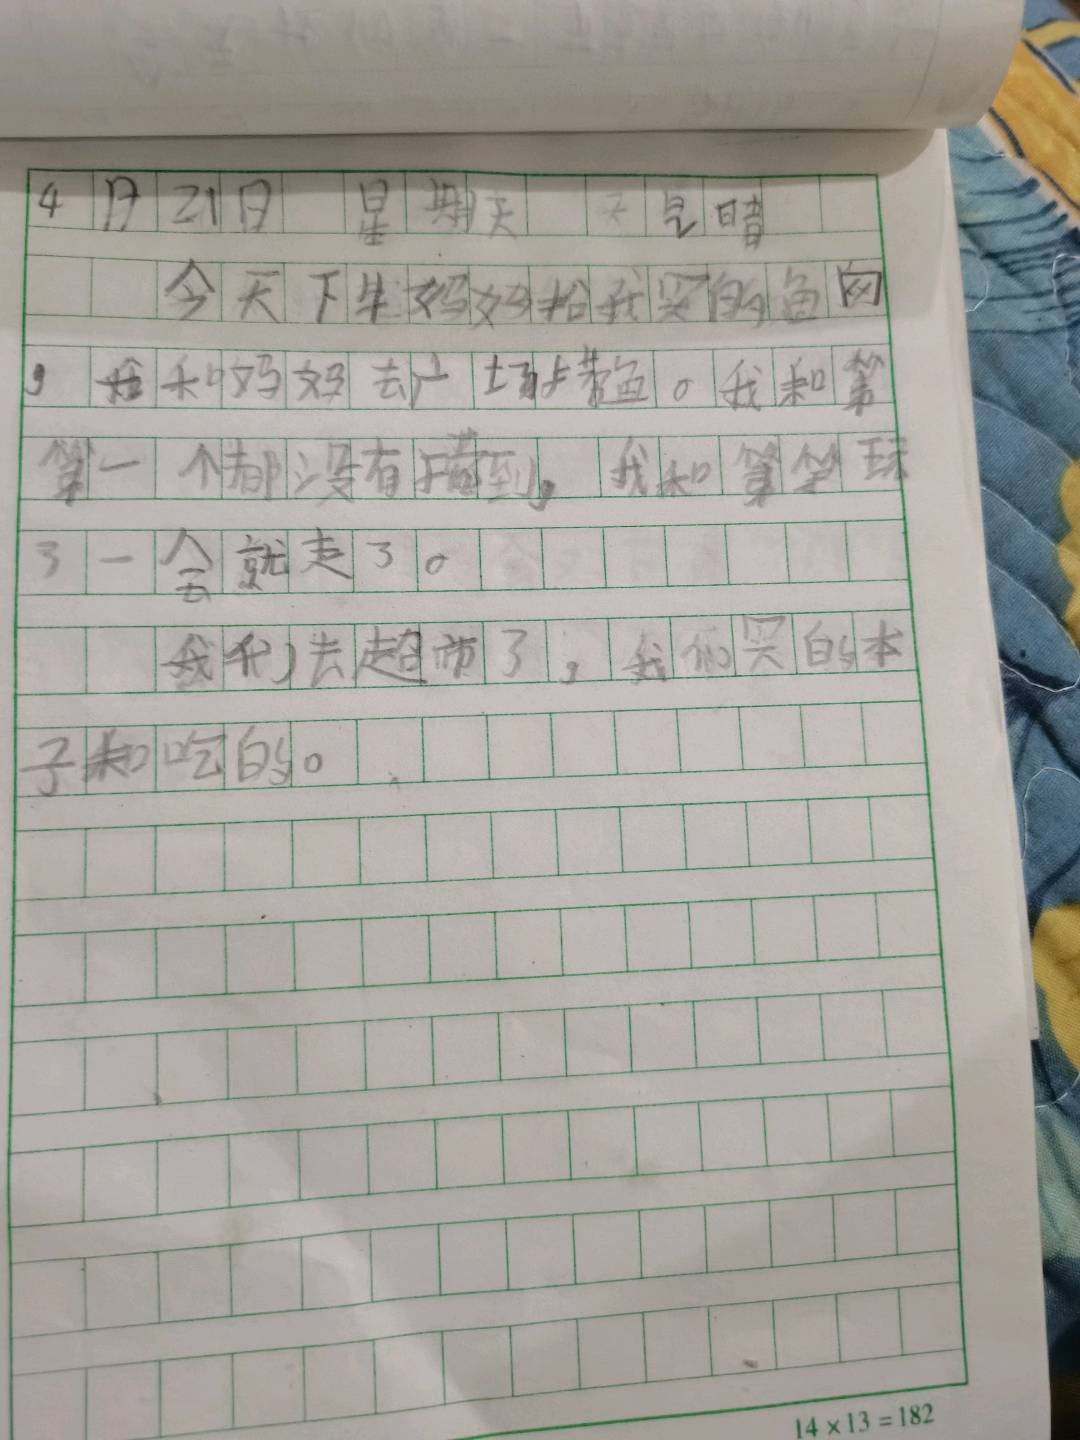 4月21日 星期天 天气晴
今天下午妈妈给我买的鱼网
，我和妈妈去广场捞鱼。我和第
第一个都没有捞到，我和第第玩
了一会就走了。
我们去超市了，我们买的本
子和吃的。
14×13=182